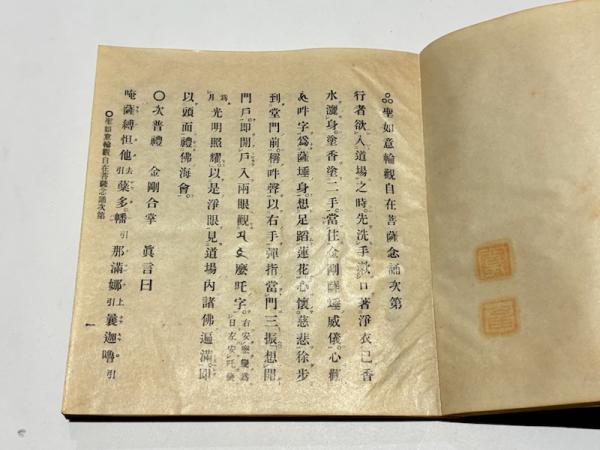 聖如意輪觀自在菩薩念誦次第
行者欲入道場之時。先洗手漱口著淨衣已香
水灑身。塗香塗二手當住金剛薩埵威儀。心觀
吽字爲薩埵身。想足蹈蓮花心懷慈悲徐步
到堂門前。稱吽聲以右手彈指當門三振。想開
門戶。即開戶入兩眼觀 麼吒字。右安麼變爲日左安吒變
爲月 光明照耀以是淨眼見道場内諸佛遍滿。即
以頭面禮佛海會。
〇次普禮 金剛合掌 眞言曰
唵薩縛怛他去引蘖多幡引那滿娜上引曩迦嚕引
〇聖如意輪觀自在菩薩念誦次第 一